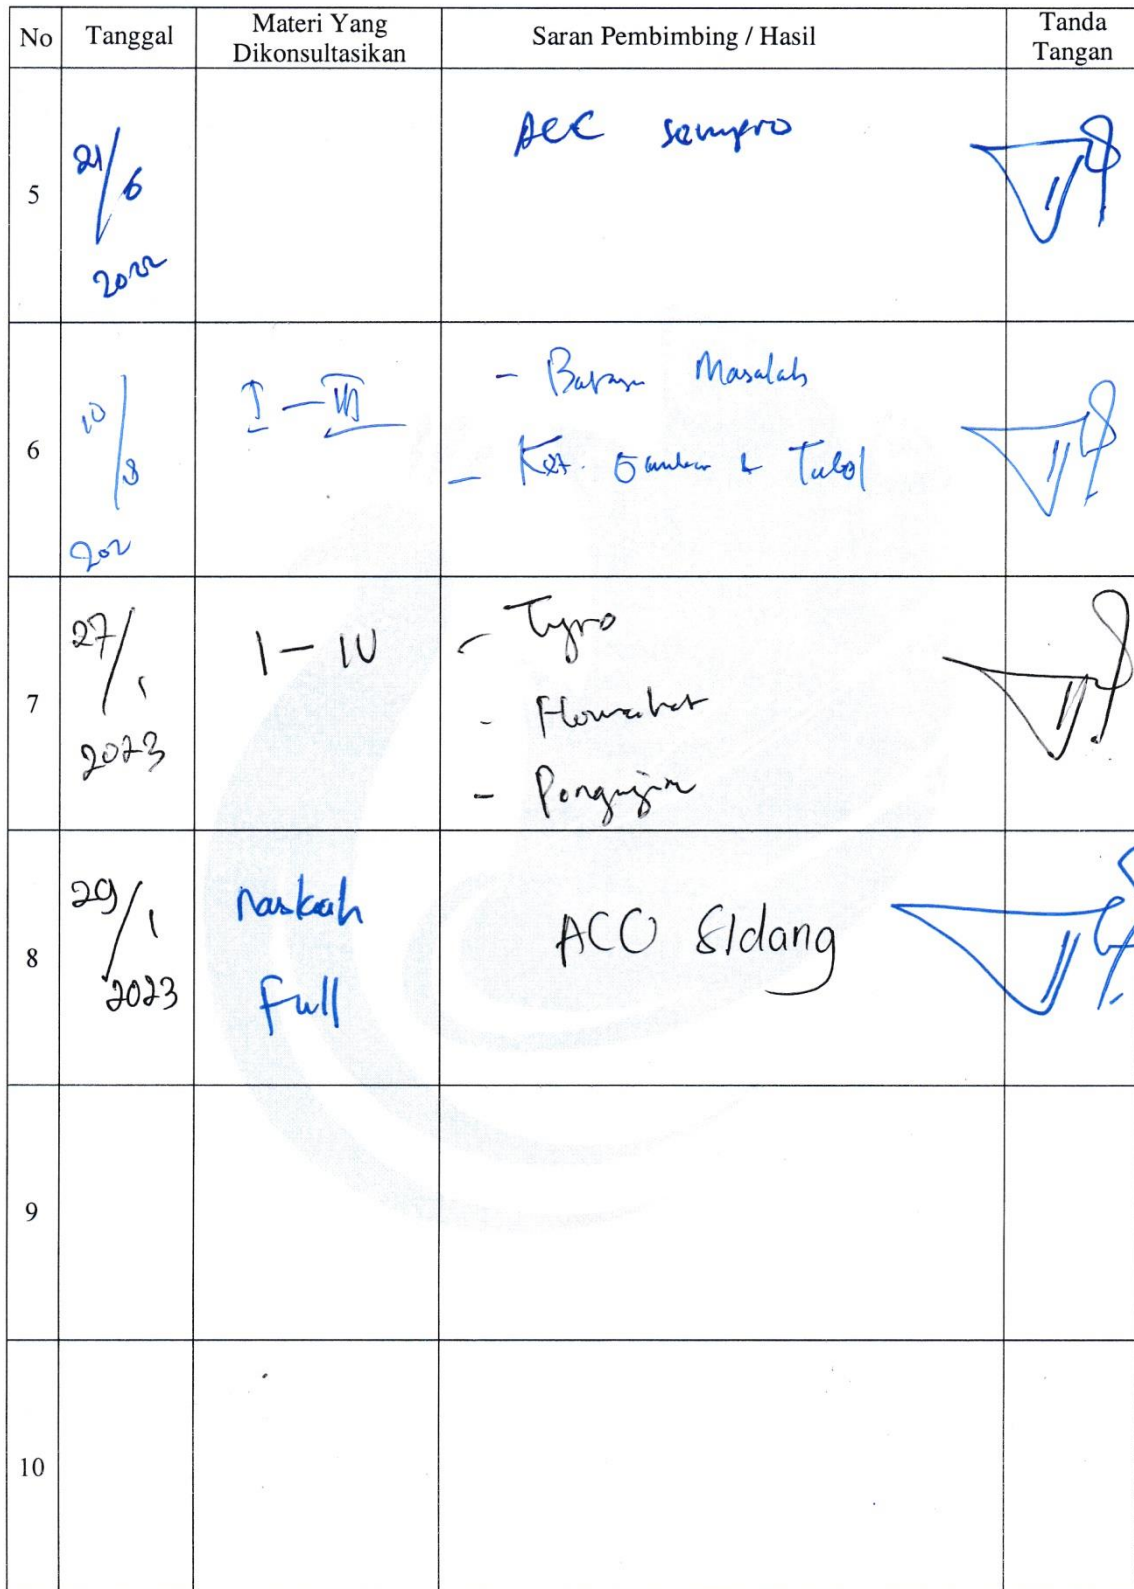 No Tanggal Materi Yang Dikonsultasikan Saran Pembimbing / Hasil Tanda Tangan
5 21/6 2022 ACC sempro
6 10/8 202 I - III - Batasan Masalah
- Ket. Gambar & Tabel
7 27/1 2023 I - IV - Typo
- Flowchart
- Pengujian
8 29/1 2023 naskah Full ACC Sidang
9
10